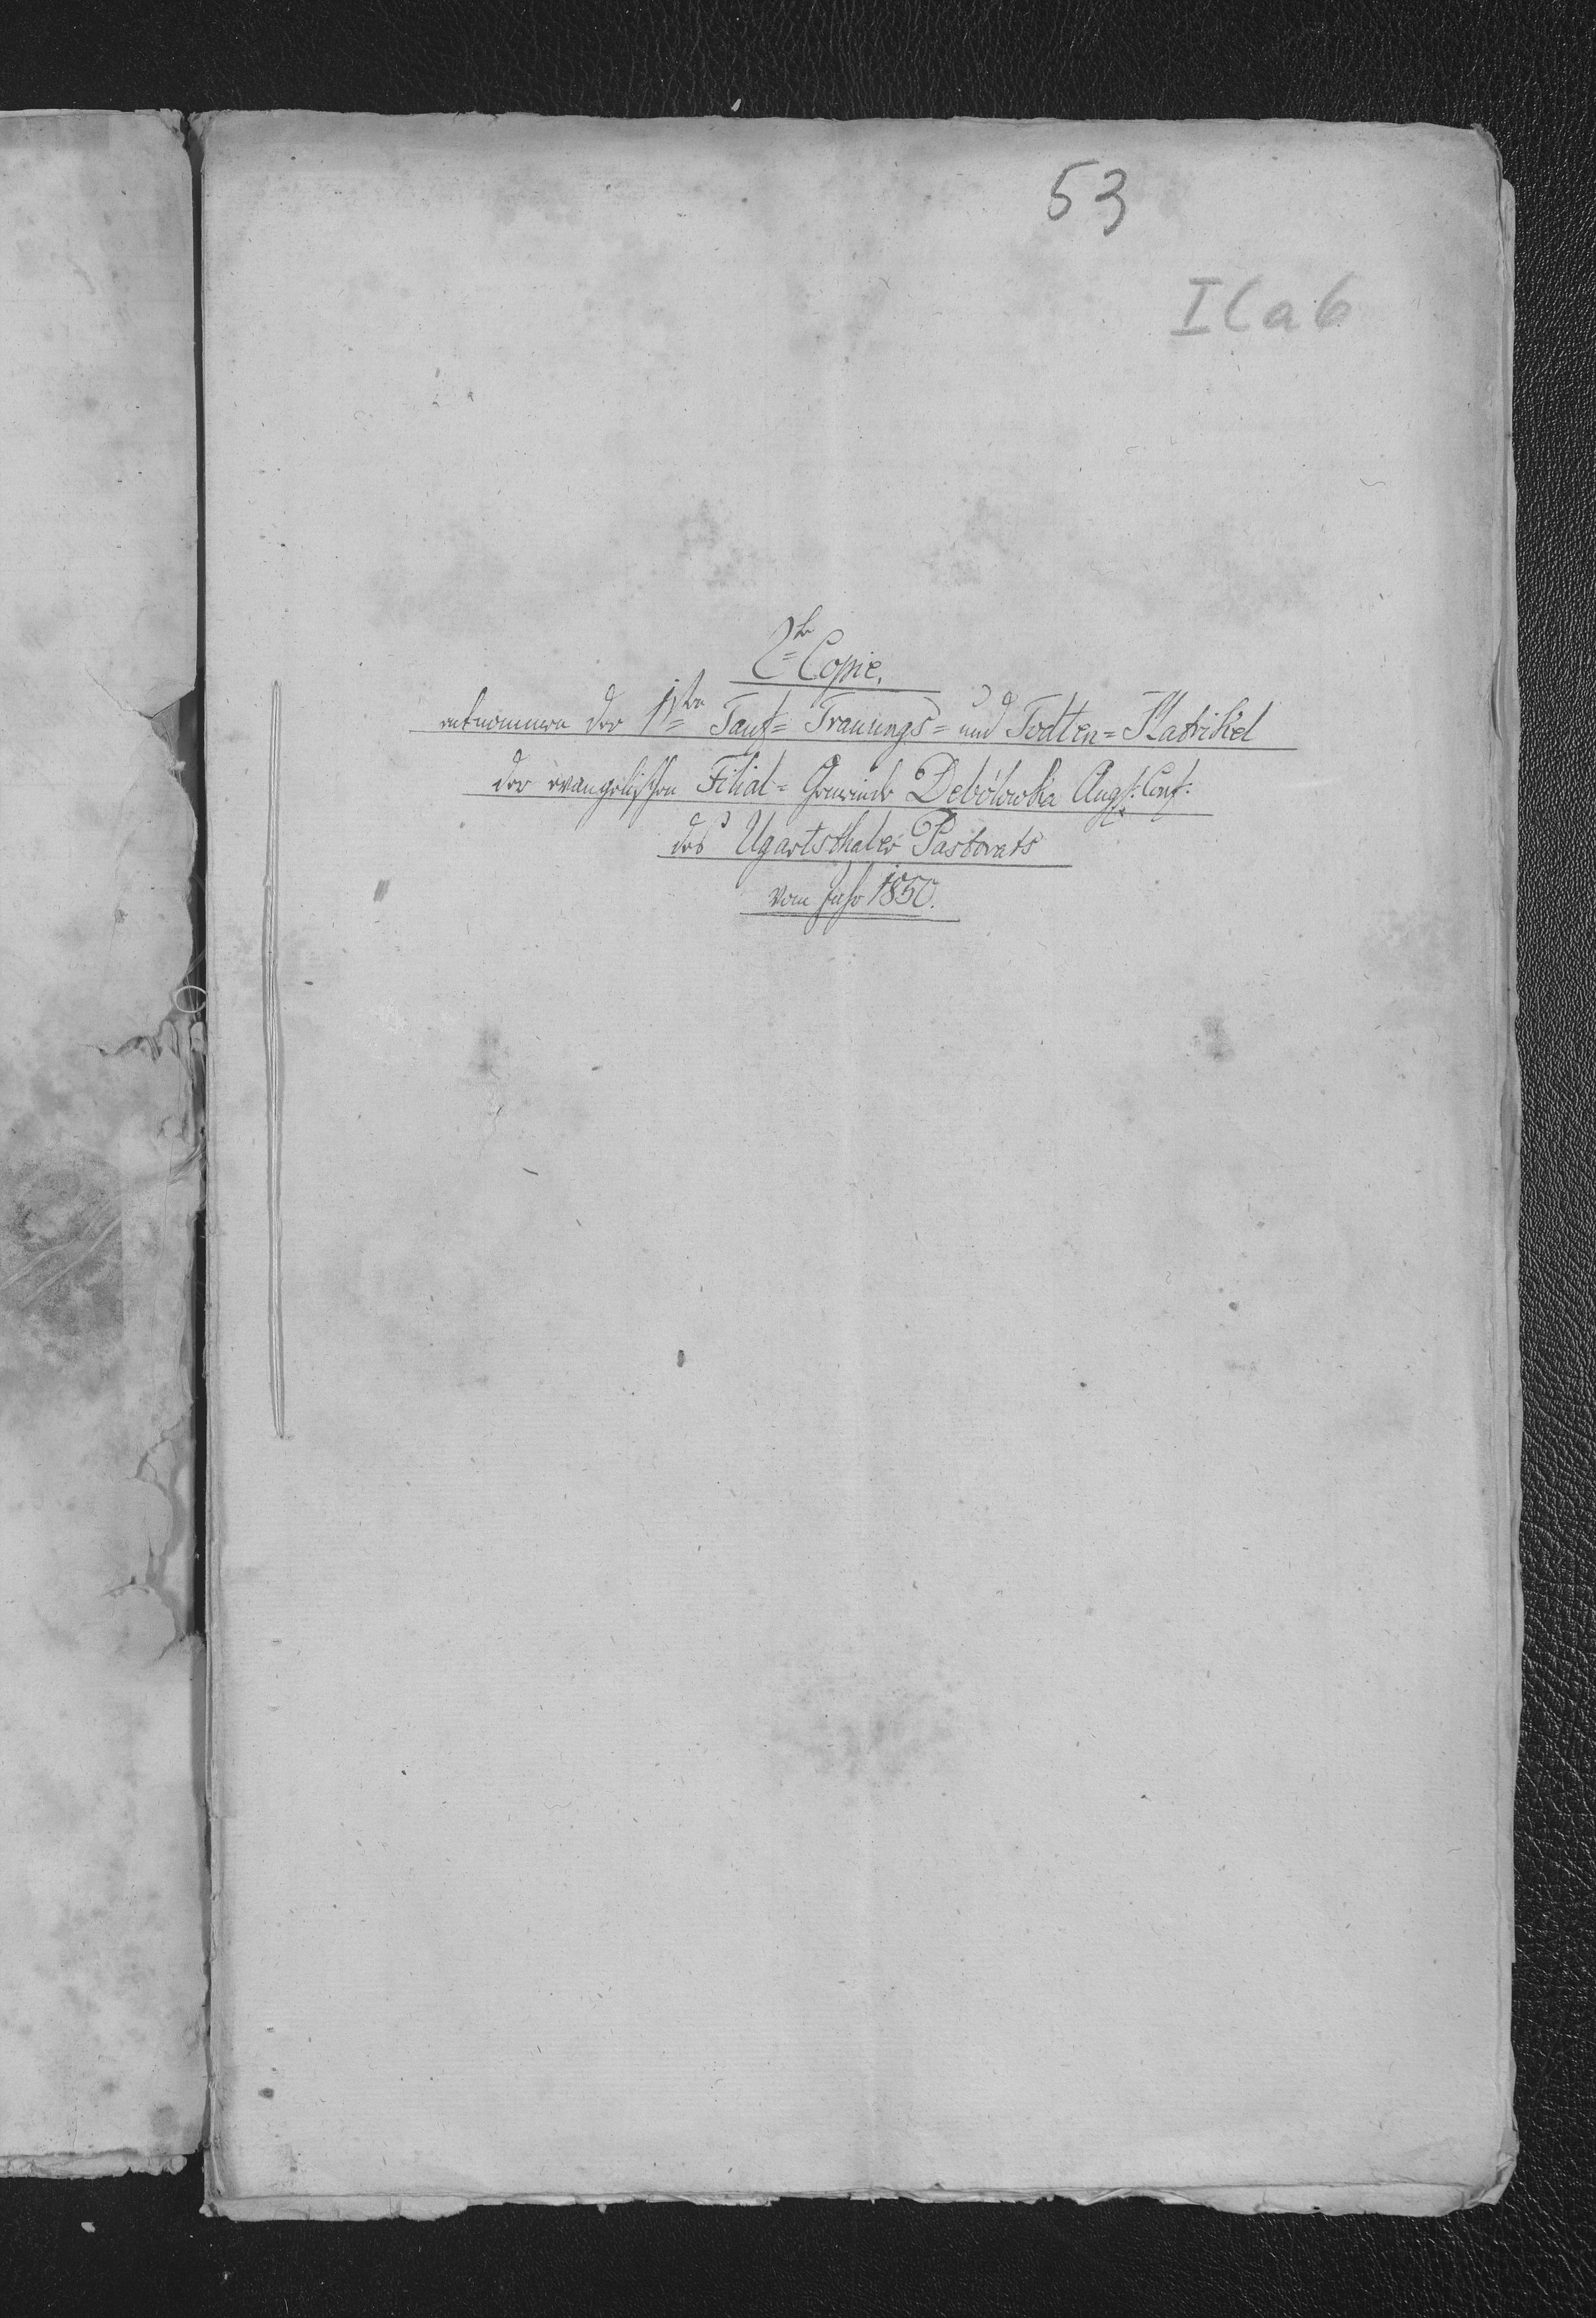 53
ICa6
2te Copie,
entnommen der 1sten Tauf= Trauungs= und Todten=Matrikel
der evangelischen Filial=Gemeinde Debólowka Augsb. Conf:
des Ugartsthaler Pastorats
vom Jahr 1850.